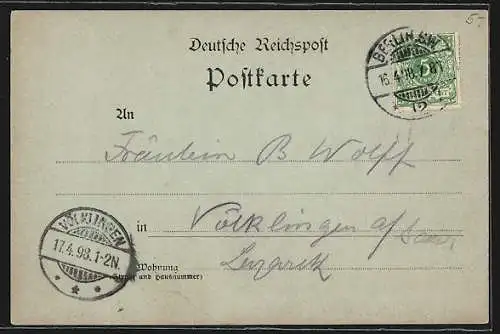 5.-
Deutsche Reichspost
Postkarte
BERLIN SW
16.4.98.7-8N
12
An
Fräulein B Wolff
in Völklingen a/Saar
Lazareth
VÖLKLINGEN
17.4.98.1-2N.
Wohnung
(Straße und Hausnummer)